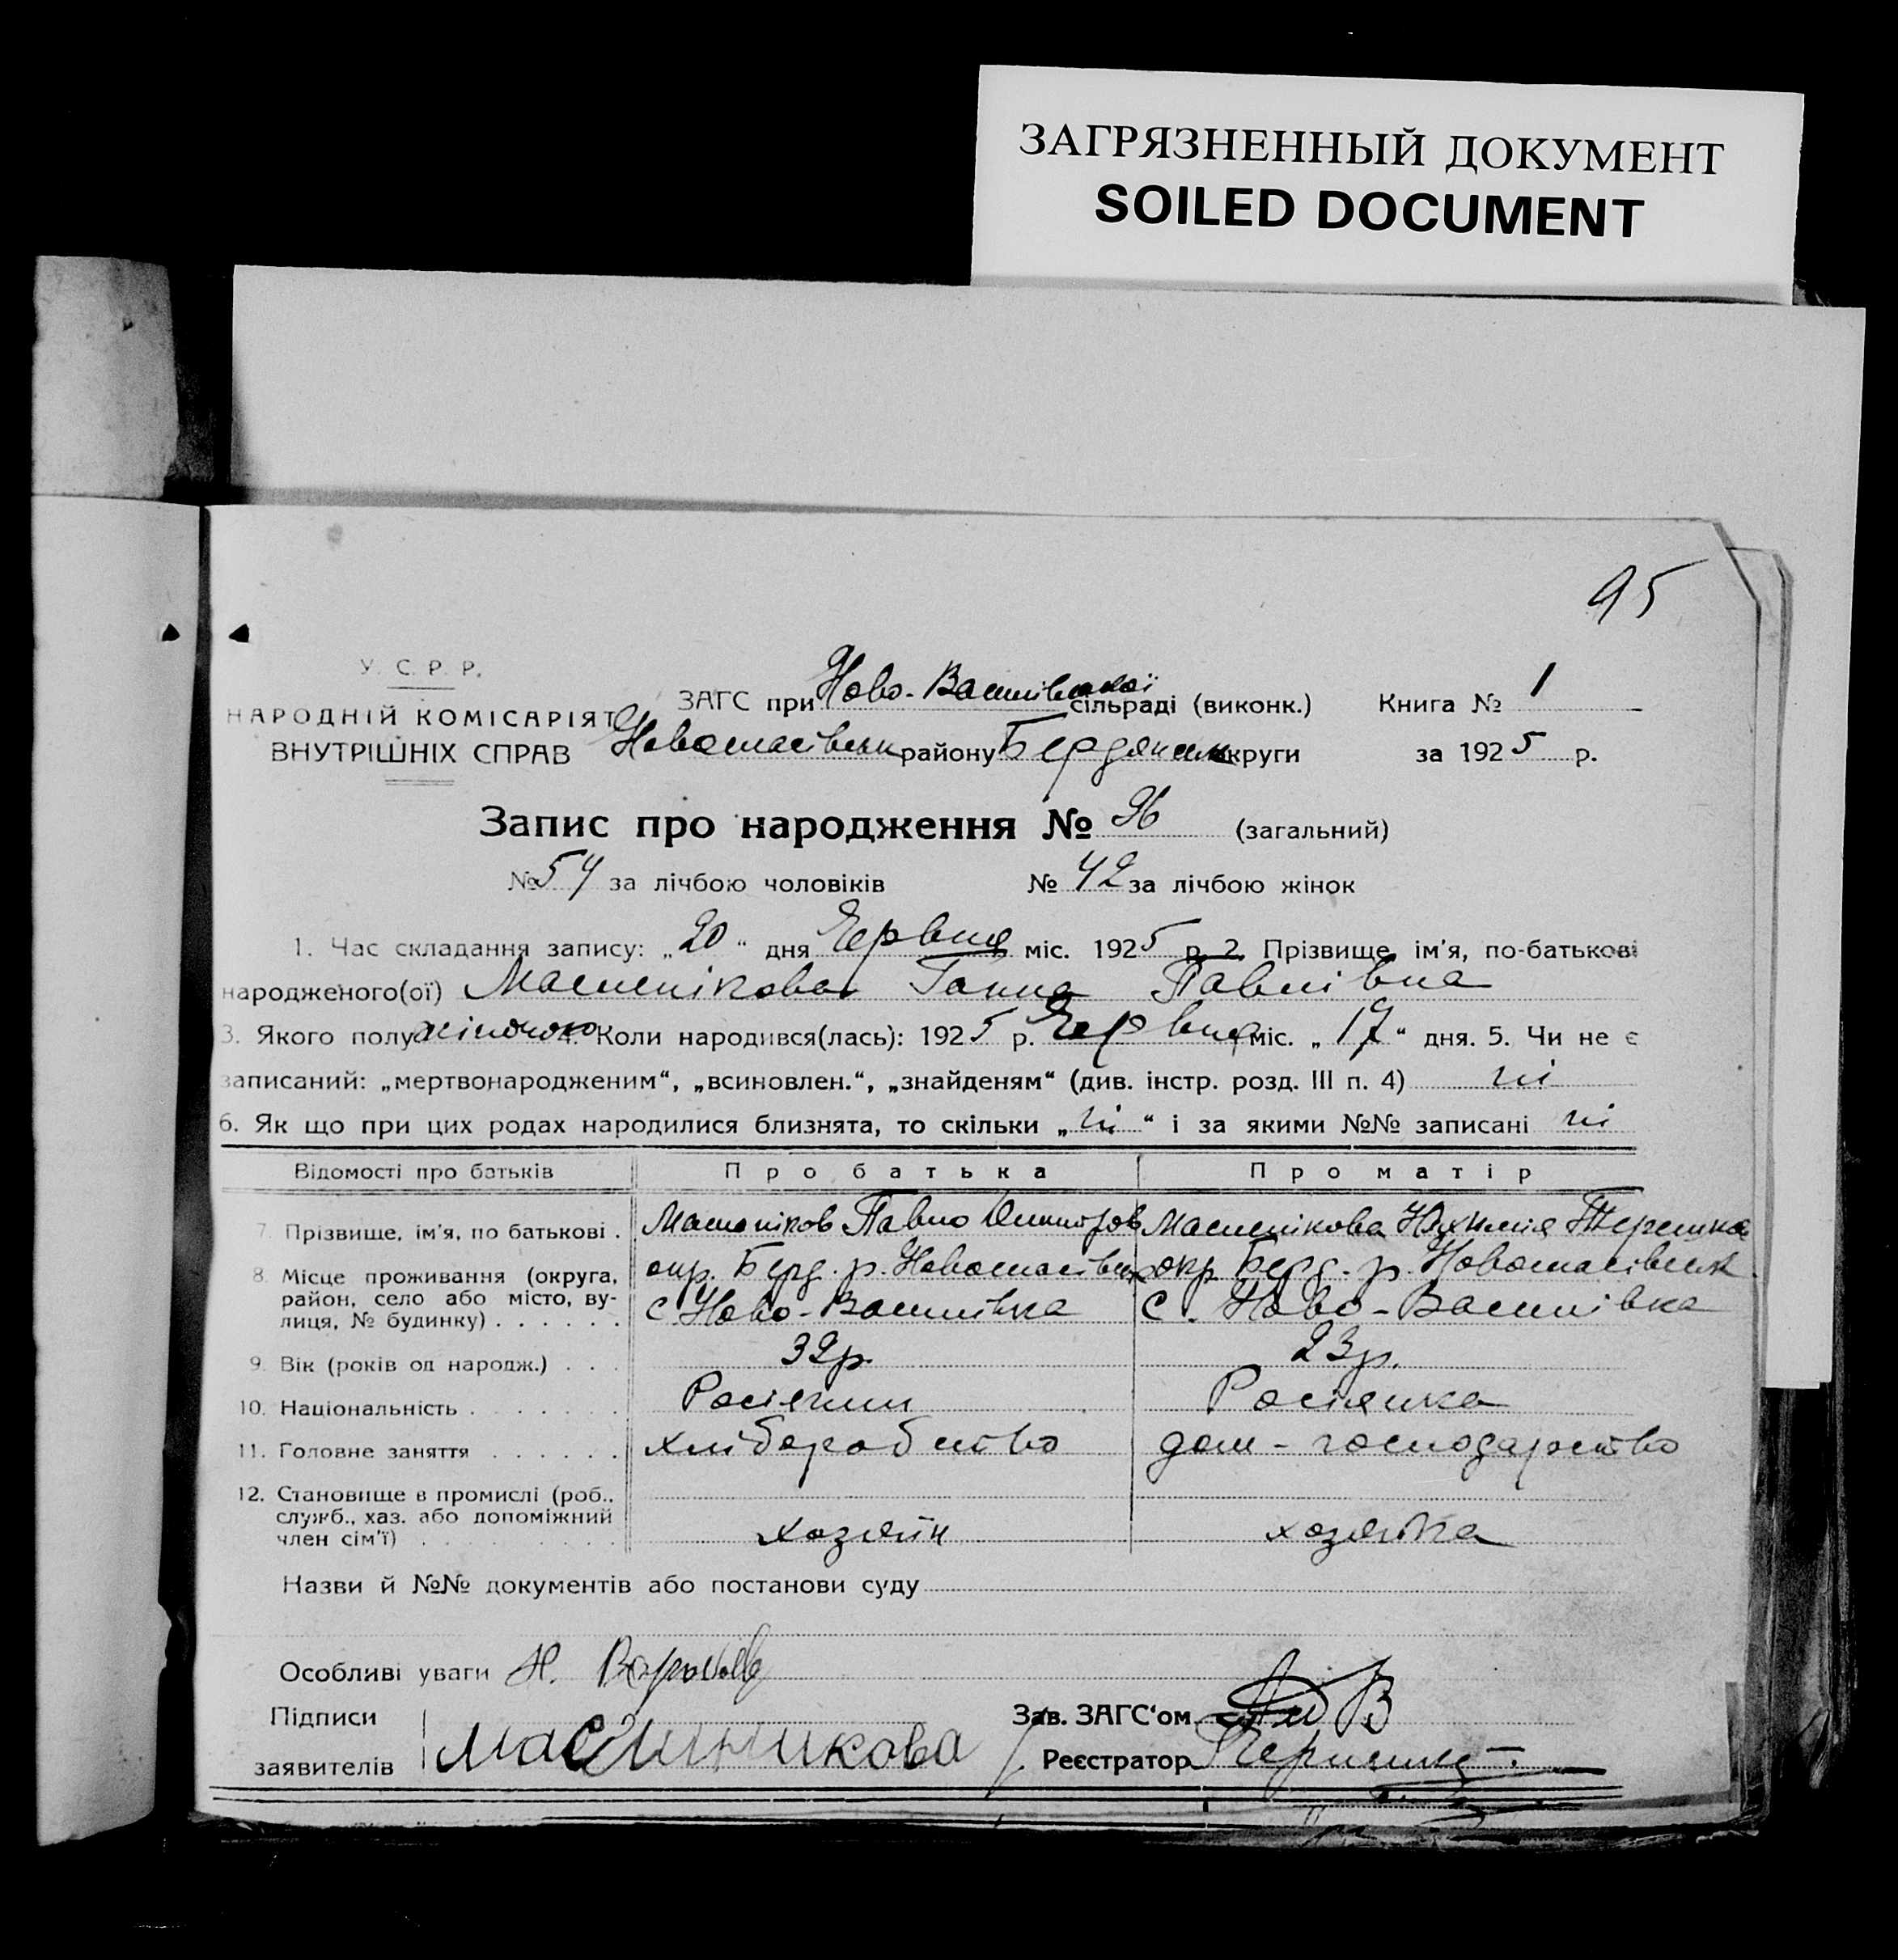 ЗАГРЯЗНЕННЫЙ ДОКУМЕНТ
SOILED DOCUMENT
95
У. С. Р. Р.
НАРОДНІЙ КОМІСАРІЯТ
ВНУТРІШНІХ СПРАВ
ЗАГС при Ново-Василівської сільраді (виконк.) Книга № 1
району Бердянськ округи за 1925 р.
Запис про народження № 96 (загальний)
№ 54 за лічбою чоловіків № 42 за лічбою жінок
1. Час складання запису: „20“ дня Червня міс. 1925 р. 2. Прізвище, ім'я, по-батькові
народженого(ої) Масленікова Ганна Павлівна
3. Якого полу жіночого 4. Коли народився(лась): 1925 р. Червня міс. „17“ дня. 5. Чи не є
записаний: „мертвонародженим“, „всиновлен.“, „знайденям“ (див. інстр. розд. III п. 4) ні
6. Як що при цих родах народилися близнята, то скільки „ні“ і за якими №№ записані ні
Відомості про батьків Про батька Про матір
7. Прізвище, ім'я, по батькові . Маслеников Павло Масленікова
8. Місце проживання (округа, окр. Берд. р. окр. Берд. р.
район, село або місто, ву- с. Ново-Василівка с. Ново-Василівка
лиця, № будинку) . . . . . .
9. Вік (років од народж.) . . . 32р. 23р.
10. Національність . . . . . . . Росіянин Росіянка
11. Головне заняття . . . . . . хліборобство дом-господарство
12. Становище в промислі (роб.,
служб., хаз. або допоміжний
член сім'ї) . . . . . . . . . хозяїн хозяйка
Назви й №№ документів або постанови суду
Особливі уваги Н.
Підписи Зав. ЗАГС'ом
заявителів Масленикова Реєстратор